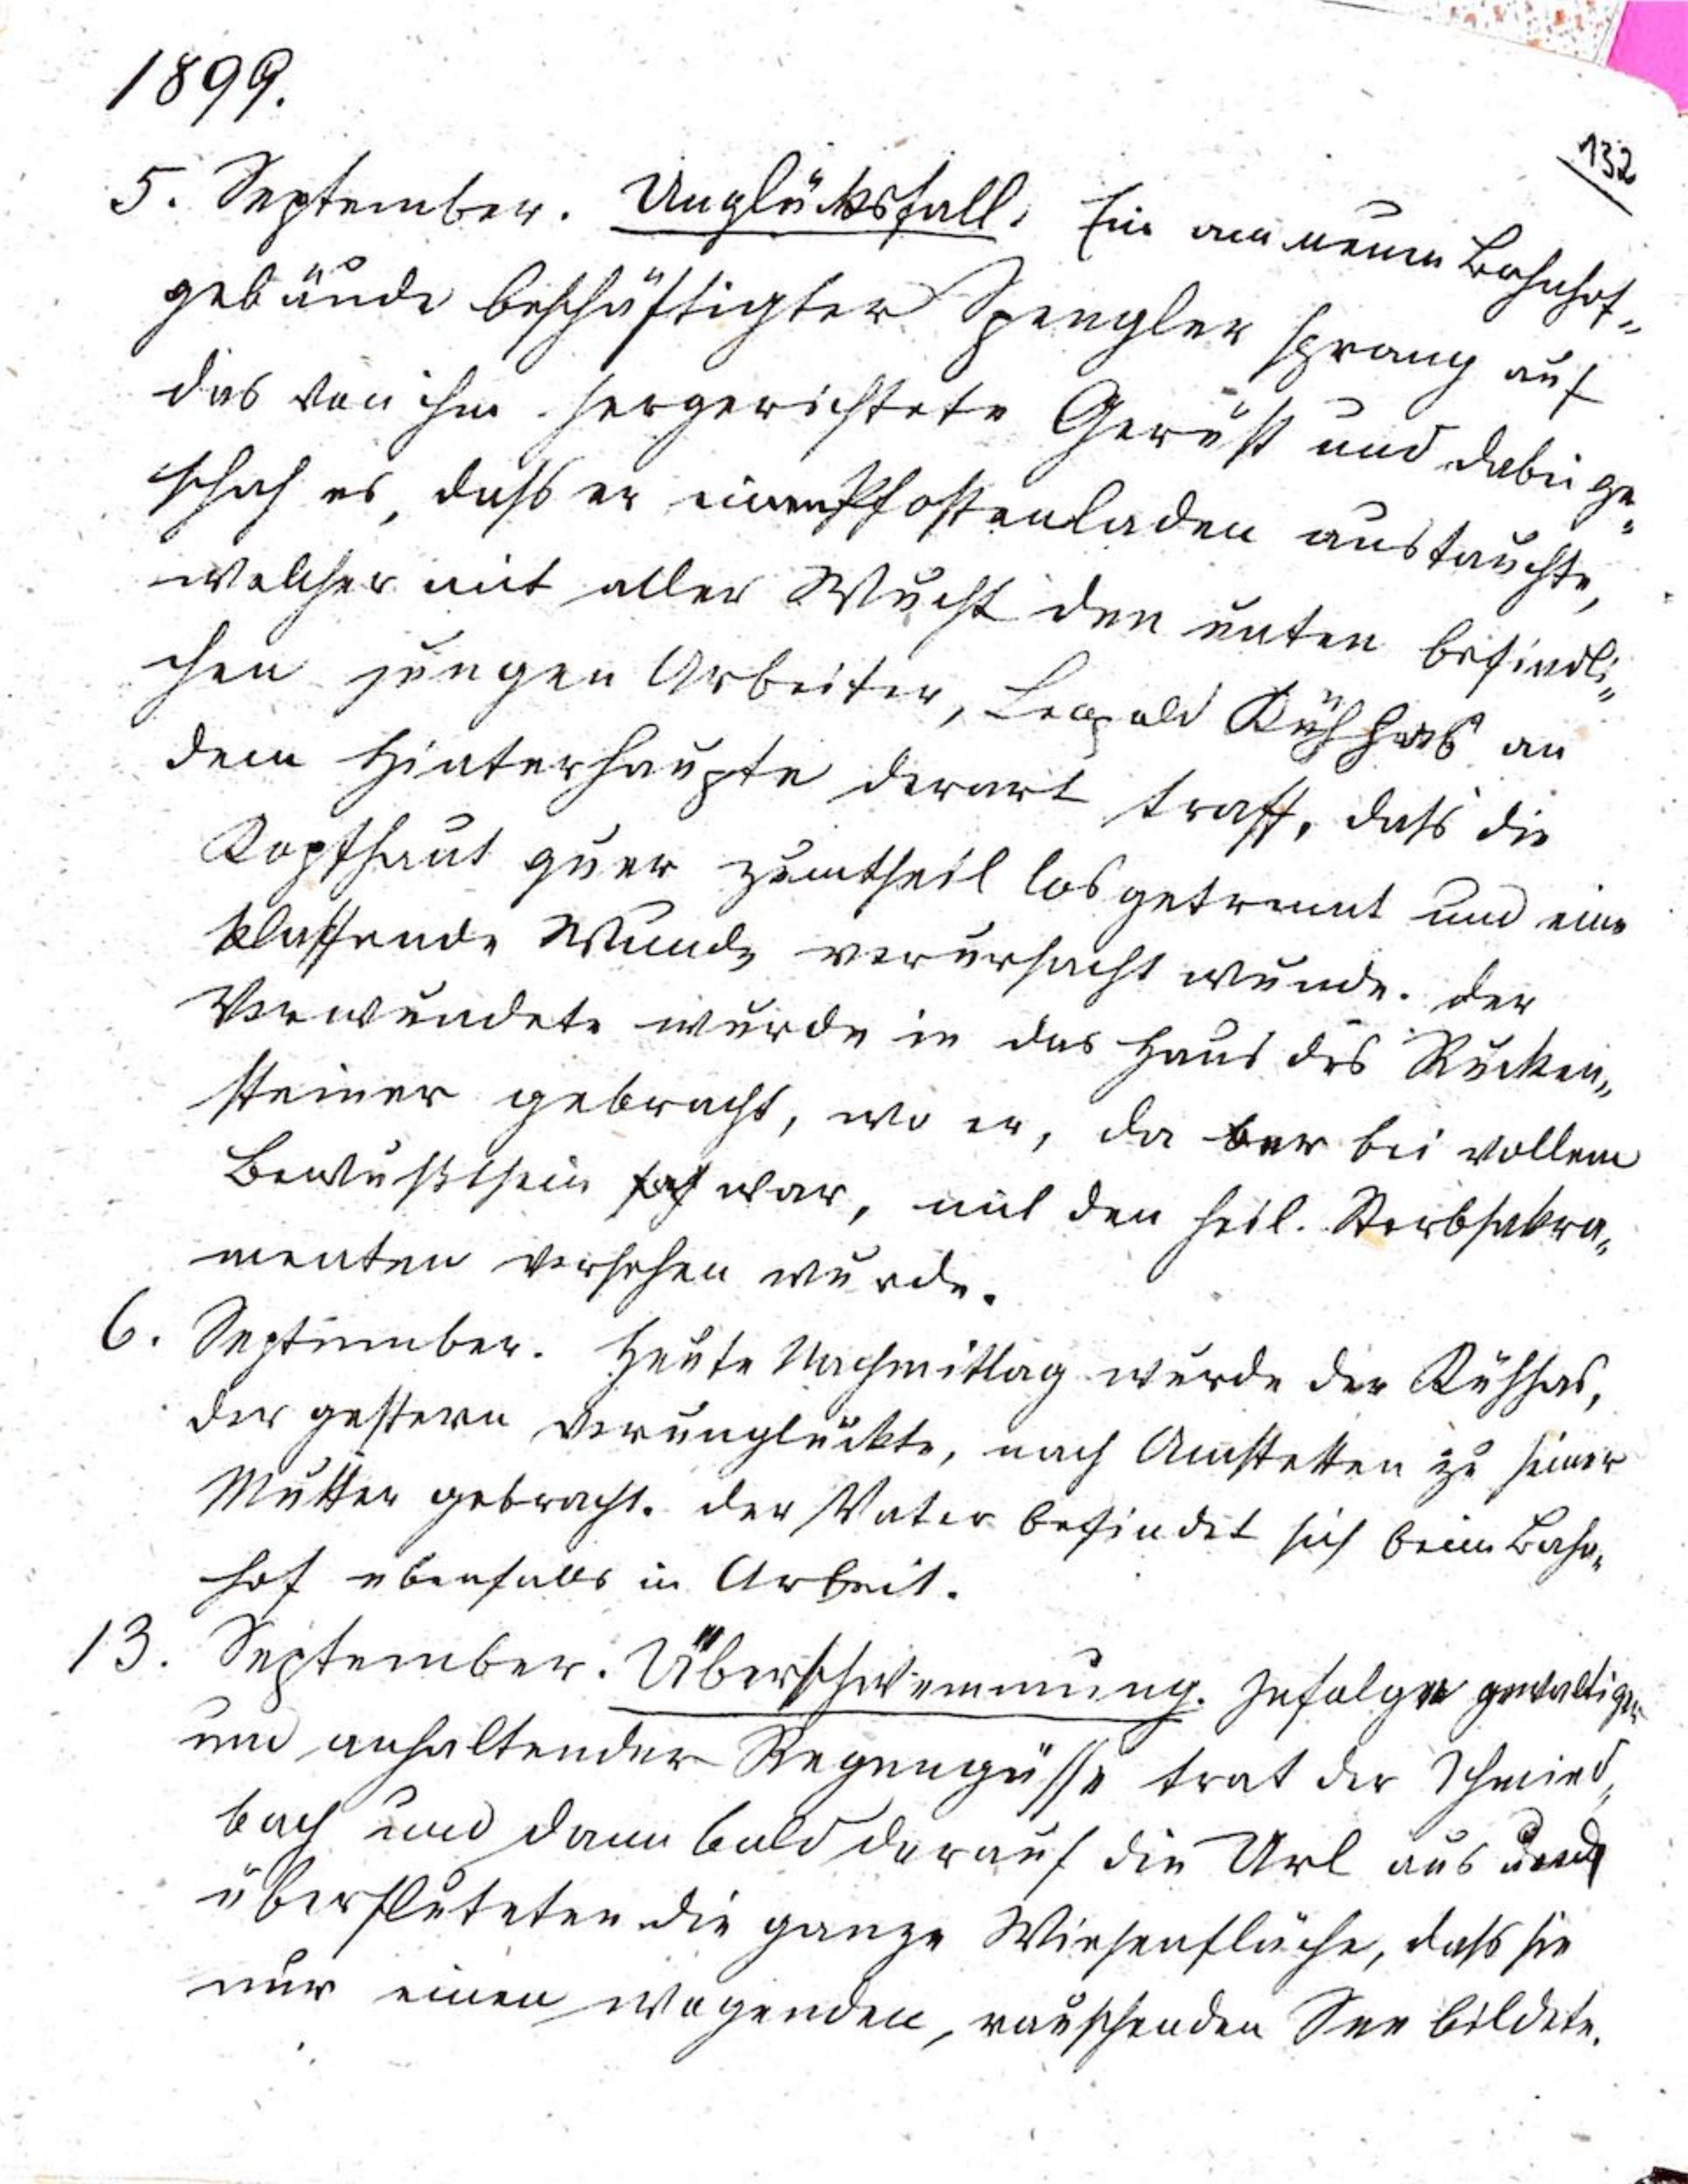 1899.
132
5. September. Unglücksfall. Ein am neuen Bahnhof-
gebäude beschäftigter Spengler sprang auf
das von ihm hergerichtete Gerüst und dabei ge-
schah es, dass er einen Pfostenladen austauchte,
welcher mit aller Wucht den unten befindli-
chen jungen Arbeiter, Leopold Kühhas an
dem Hinterhaupte derart traff, dass die
Kopfhaut quer zumtheil losgetrennt und eine
klaffende Wunde verursacht wurde. Der
Verwundete wurde in das Haus des Rücken-
steiner gebracht, wo er, da er bei vollem
Bewußtsein war, mit den heil. Sterbsakra-
menten versehen wurde.
6. September. Heute Nachmittag wurde der Kühhas,
der gestern verunglückte, nach Amstetten zu seiner
Mutter gebracht. Der Vater befindet sich beim Bahn-
hof ebenfalls in Arbeit.
13. September. Überschwemmung. Zufolge gewaltiger
und anhaltender Regengüsse trat der Schmied-
bach und dann bald darauf die Url aus und
überfluteten die ganze Wiesenfläche, dass sie
nur einen wogenden, rauschenden See bildete.